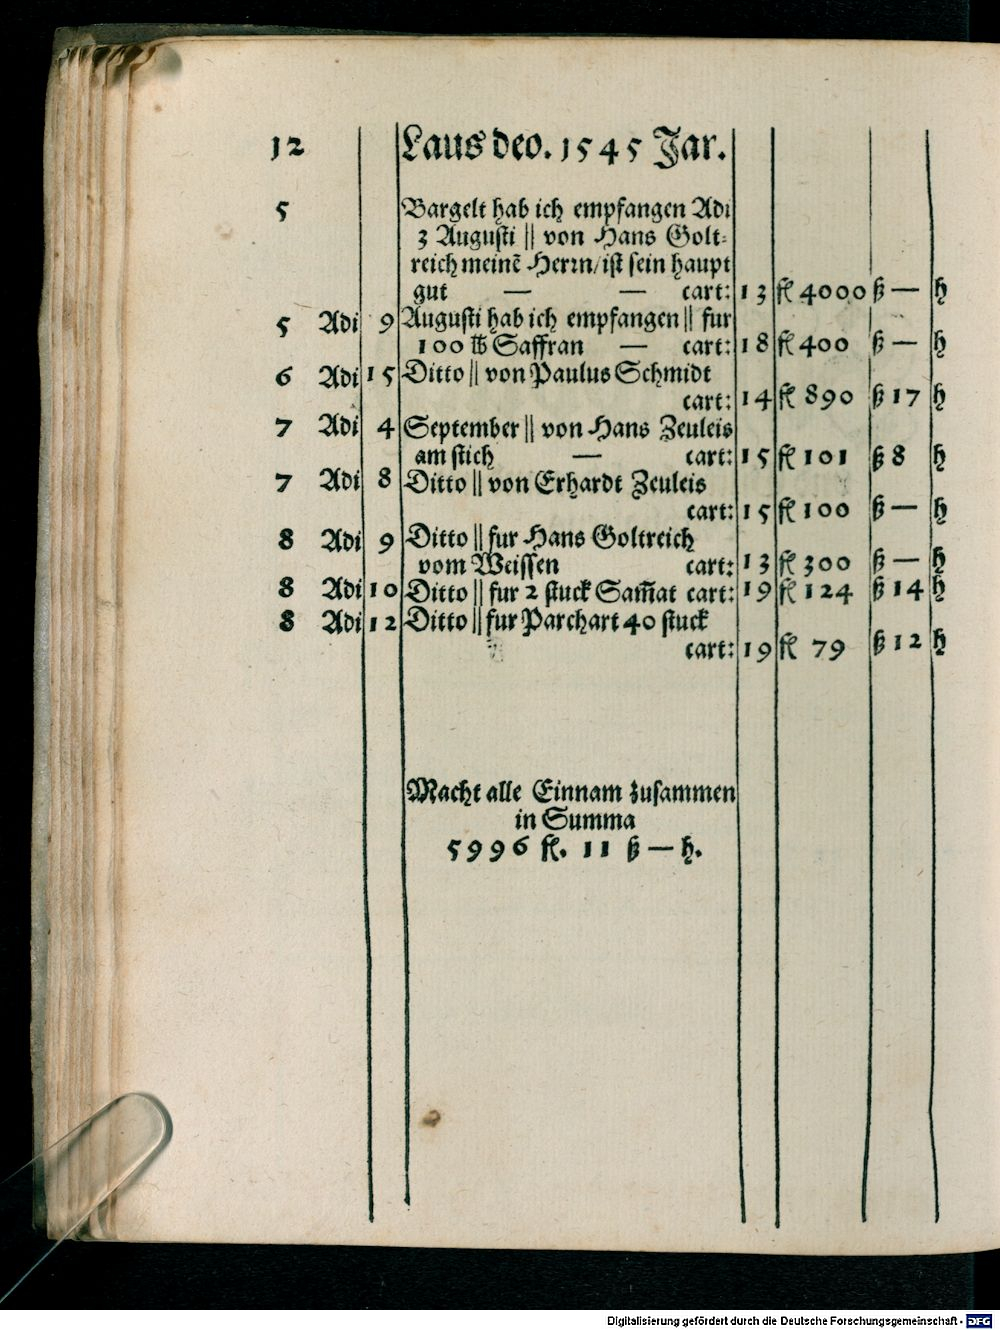 12 Laus deo. 1545 Jar.
5 Bargelt hab ich empfangen Adi
3 Augusti || von Hans Golt⸗
reich meinē Herrn/ ist sein haupt
gut — — cart: 13 fl 4000 ß — h
5 Adi 9 Augusti hab ich empfangen || fur
100 ℔ Saffran — cart: 18 fl 400 ß — h
6 Adi 15 Ditto || von Paulus Schmidt
cart: 14 fl 890 ß 17 h
7 Adi 4 September || von Hans Zeuleis
am stich — cart: 15 fl 101 ß 8 h
7 Adi 8 Ditto || von Erhardt Zeuleis
cart: 15 fl 100 ß — h
8 Adi 9 Ditto || fur Hans Goltreich
vom Weissen cart: 13 fl 300 ß — h
8 Adi 10 Ditto || fur 2 stuck Sam̄at cart: 19 fl 124 ß 14 h
8 Adi 12 Ditto || fur Parchart 40 stuck
cart: 19 fl 79 ß 12 h
Macht alle Einnam zusammen
in Summa
5996 fl. 11 ß — h.
Digitalisierung gefördert durch die Deutsche Forschungsgemeinschaft - DFG